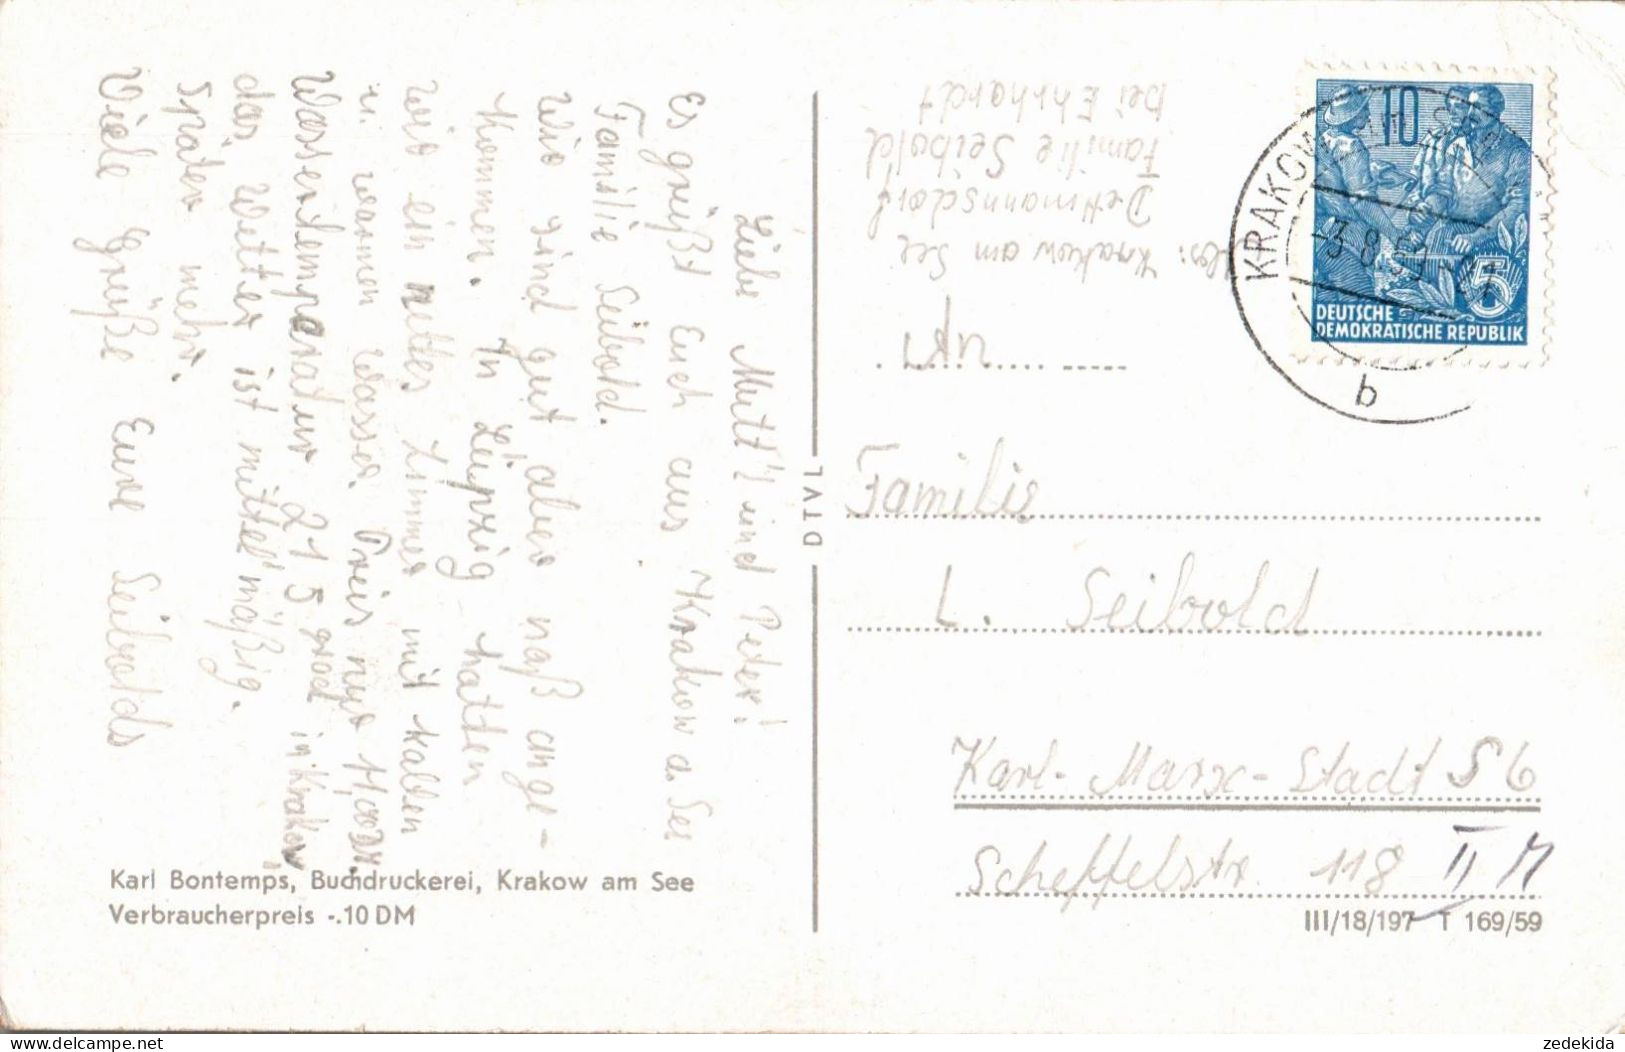 Liebe Mutt'l und Peter!
Es grüßt Euch aus Krakow a. See
Familie Seibold.
Wir sind gut aber naß ange-
kommen. In Leipzig hatten
wir ein nettes Zimmer mit kalten
u. warmen Wasser. Preis nur 11,00 DM.
Wassertemperatur 21,5 grad in Krakow,
das Wetter ist mittel'mäßig.
Später mehr.
Viele Grüße Eure Seibolds
Karl Bontemps, Buchdruckerei, Krakow am See
Verbraucherpreis -.10 DM
DTVL
Abs: Krakow am See
Dettmannsdorf
Familie Seibold
bei Ehrhardt
10
5
DEUTSCHE
DEMOKRATISCHE REPUBLIK
KRAKOW AM SEE
-3.8.59
b
Familie
L. Seibold
Karl-Marx-Stadt S 6
Scheffelstr 118 II
III/18/197 T 169/59
zedekida